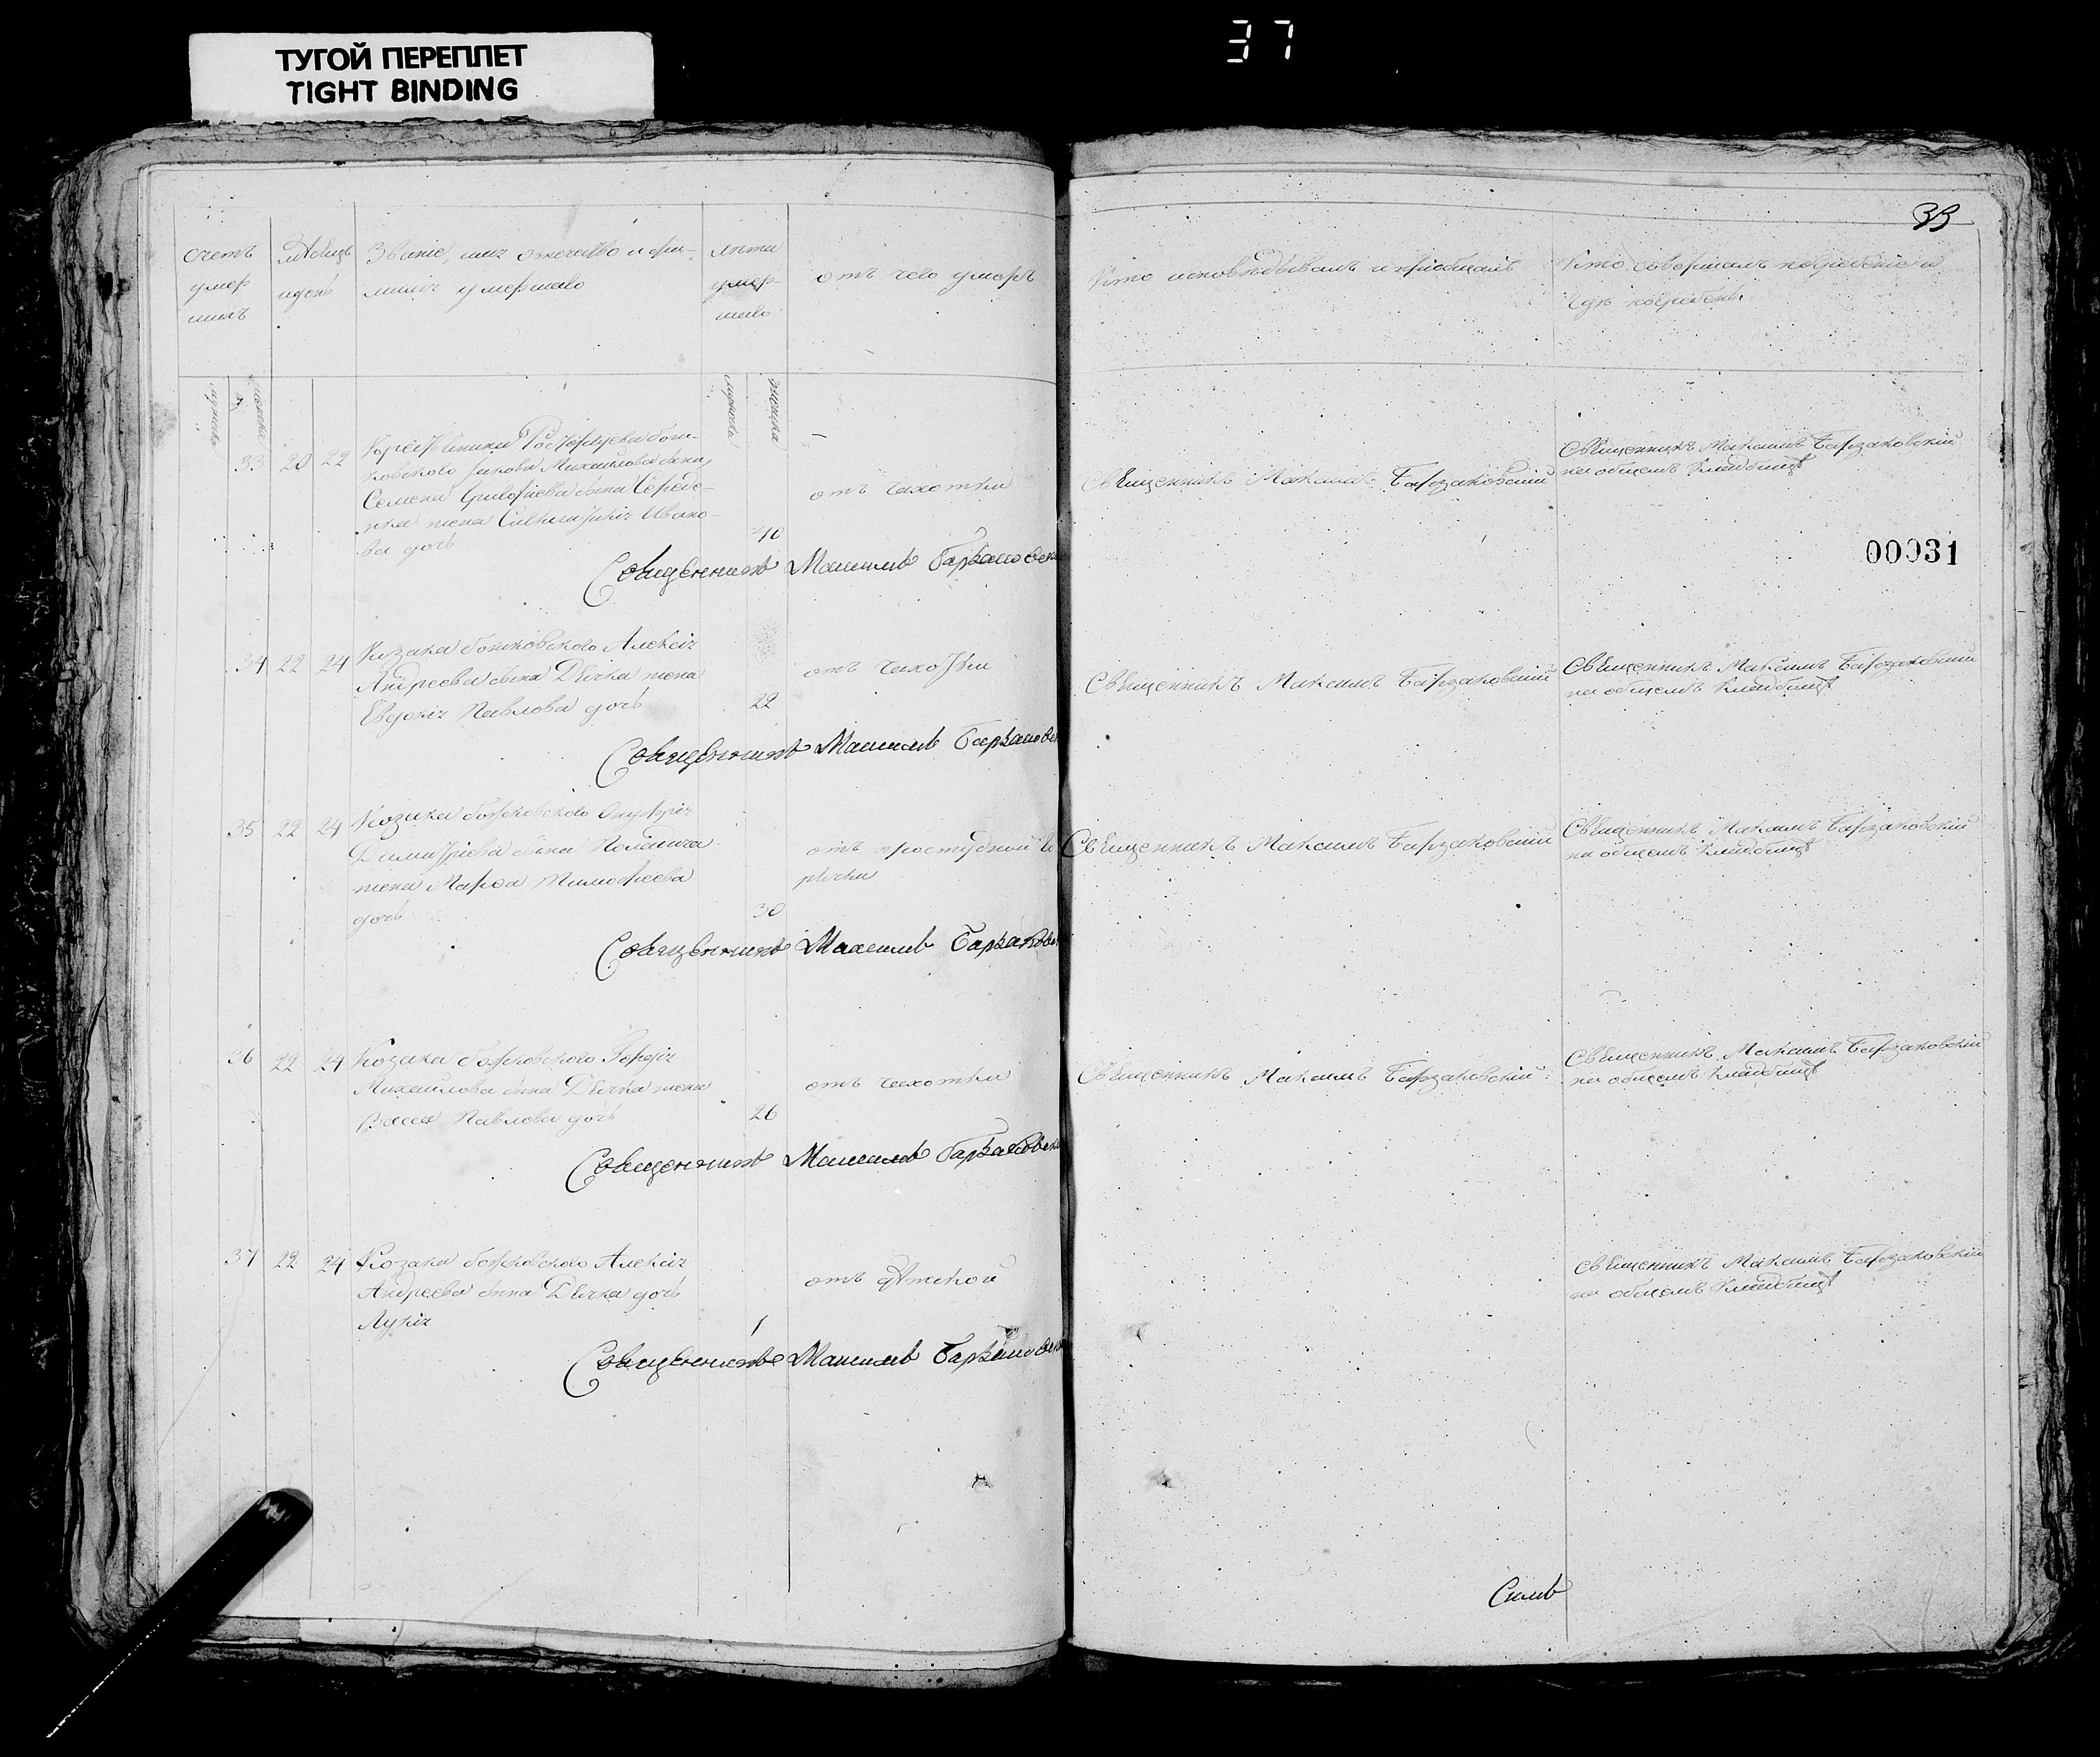 ТУГОЙ ПЕРЕПЛЕТ
TIGHT BINDING
37
39
счетъ умер шихъ
Мѣсяцъ и день
Званіе, имя отчество и фа-
милія умершаго
лѣта умер шаго
отъ чего умеръ
Кто исповѣдывалъ и пріобщалъ
Кто совершалъ погребеніе и
гдѣ погребены
мужеска
женска
мужеска
женска
33 20 22
Михайлова сына
Семена сына
жена Ивано-
ва дочь
40
отъ чахотки
Священникъ Максимъ Барзаковскій
Священникъ Максимъ Барзаковскій
на общемъ кладбищѣ
Священникъ Максимъ Барзаковск
00031
34 22 24
Козака Алексія
Андреева сына Дѣчка жена
Евдокія Павлова дочь
22
отъ чахотки
Священникъ Максимъ Барзаковскій
Священникъ Максимъ Барзаковскій
на общемъ кладбищѣ
Священникъ Максимъ Барзаковск
35 22 24
Козака
Димитріева сына
жена Марфа Тимофеева
дочь
30
отъ простудной го
рячки
Священникъ Максимъ Барзаковскій
Священникъ Максимъ Барзаковскій
на общемъ кладбищѣ
Священникъ Максимъ Барзаковск
36 22 24
Козака Гордія
Михайлова сына Дѣчка жена
Васса Павлова дочь
26
отъ чахотки
Священникъ Максимъ Барзаковскій
Священникъ Максимъ Барзаковскій
на общемъ кладбищѣ
Священникъ Максимъ Барзаковск
37 22 24
Козака Алексія
Андреева сына Дѣчка дочь
Лукія
1
отъ дѣтской
Священникъ Максимъ Барзаковскій
на общемъ кладбищѣ
Священникъ Максимъ Барзаковск